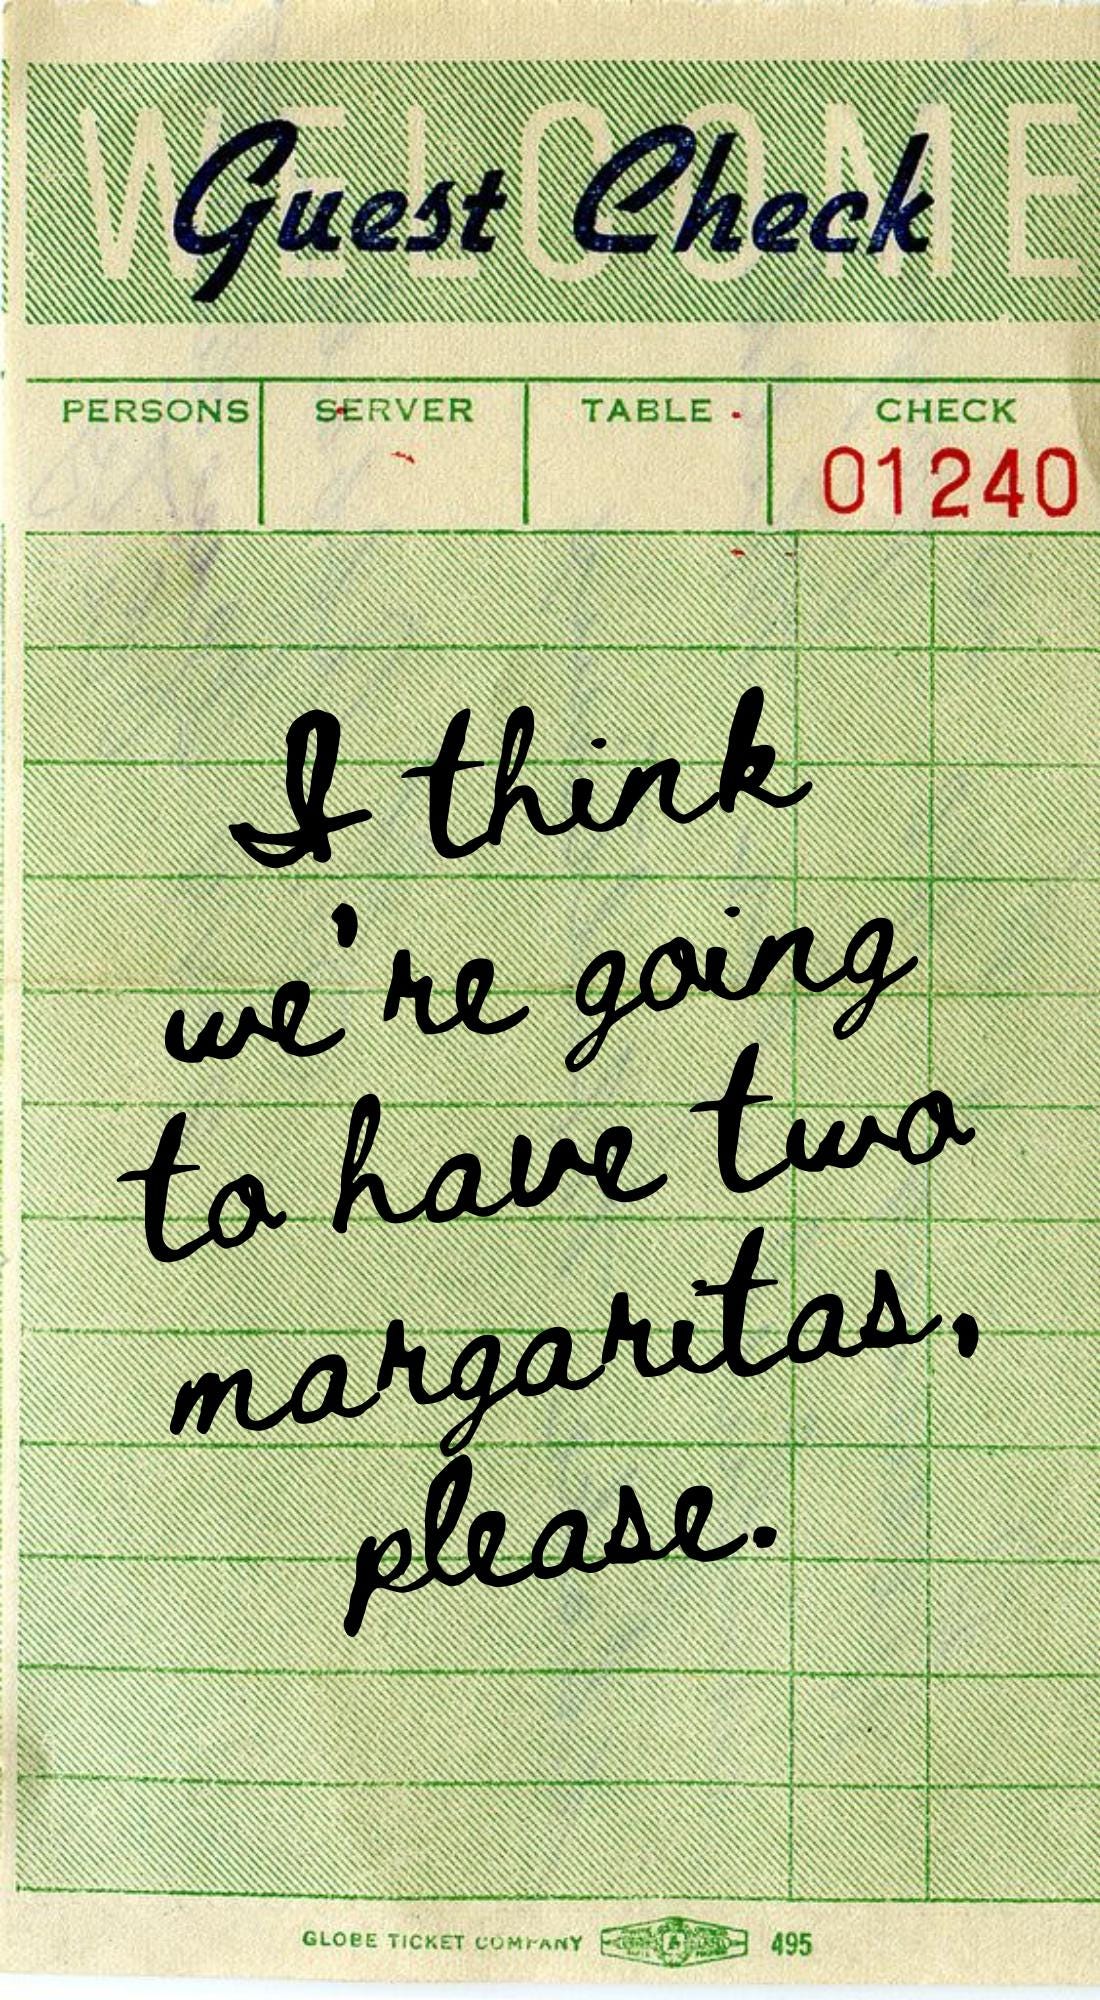 WELCOME
Guest Check
PERSONS SERVER TABLE CHECK
01240
I think
we're going
to have two
margaritas,
please.
GLOBE TICKET COMPANY 495